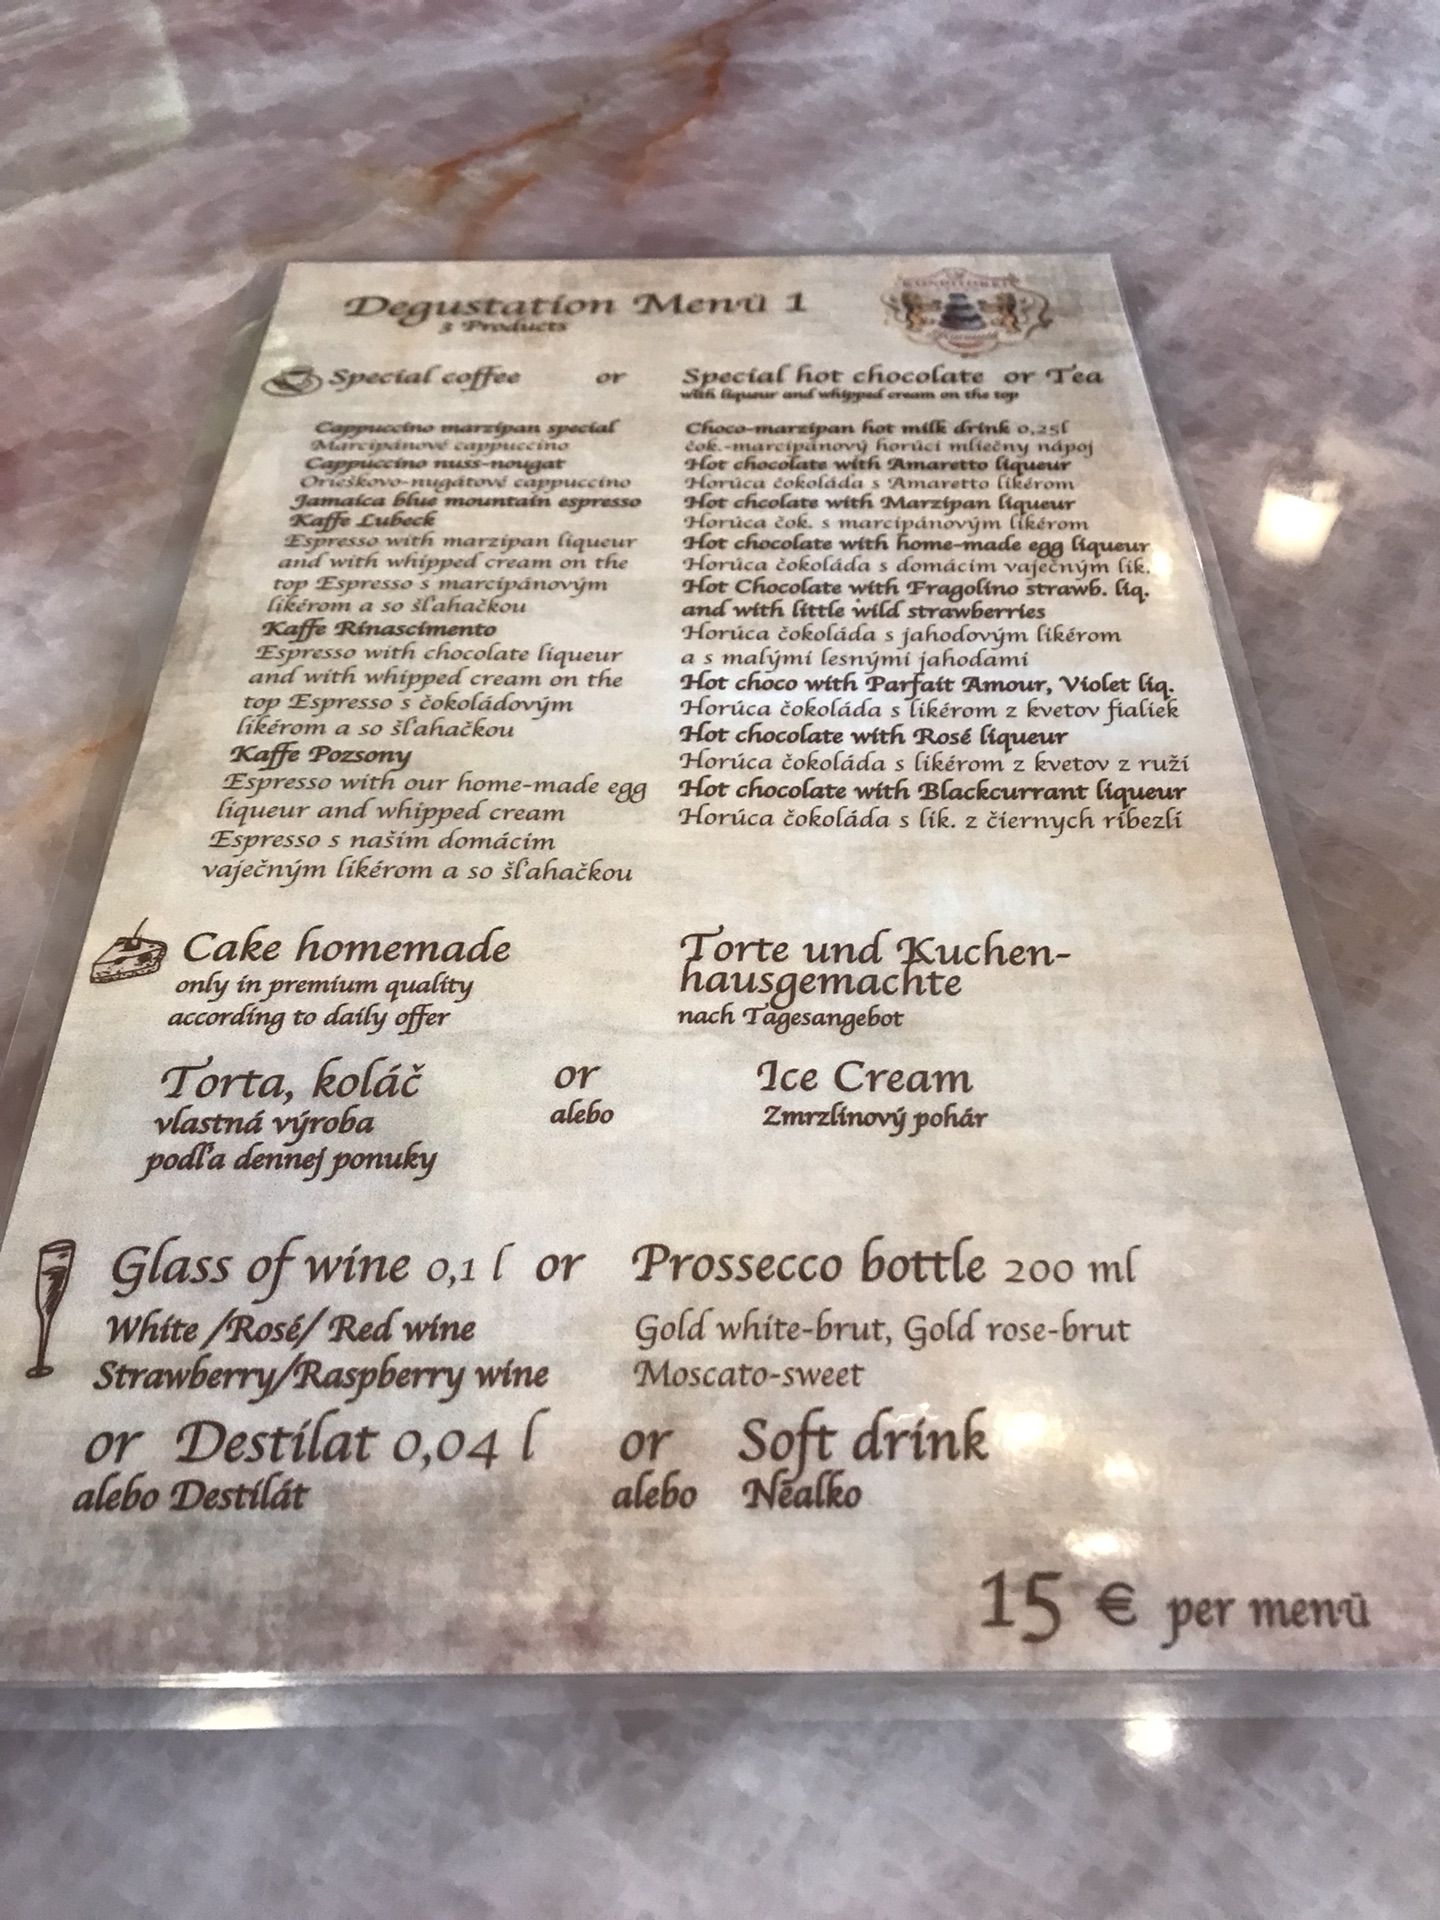 Degustation Menü 1
3 Products
KONDITOREI
Special coffee or
Special hot chocolate or Tea
with liqueur and whipped cream on the top
Cappuccino marzipan special
Marcipánové cappuccino
Cappuccino nuss-nougat
Orieškovo-nugátové cappuccino
Jamaica blue mountain espresso
Kaffe Lubeck
Espresso with marzipan liqueur
and with whipped cream on the
top Espresso s marcipánovým
likérom a so šľahačkou
Kaffe Rinascimento
Espresso with chocolate liqueur
and with whipped cream on the
top Espresso s čokoládovým
likérom a so šľahačkou
Kaffe Pozsony
Espresso with our home-made egg
liqueur and whipped cream
Espresso s naším domácim
vaječným likérom a so šľahačkou
Choco-marzipan hot milk drink 0,25l
čok.-marcipánový horúci mliečny nápoj
Hot chocolate with Amaretto liqueur
Horúca čokoláda s Amaretto likérom
Hot chcolate with Marzipan liqueur
Horúca čok. s marcipánovým likérom
Hot chocolate with home-made egg liqueur
Horúca čokoláda s domácim vaječným lik.
Hot Chocolate with Fragolino strawb. liq.
and with little wild strawberries
Horúca čokoláda s jahodovým likérom
a s malými lesnými jahodami
Hot choco with Parfait Amour, Violet liq.
Horúca čokoláda s likérom z kvetov fialiek
Hot chocolate with Rosé liqueur
Horúca čokoláda s likérom z kvetov z ruží
Hot chocolate with Blackcurrant liqueur
Horúca čokoláda s lik. z čiernych ríbezlí
Cake homemade
only in premium quality
according to daily offer
Torte und Kuchen-
hausgemachte
nach Tagesangebot
Torta, koláč
vlastná výroba
podľa dennej ponuky
or
alebo
Ice Cream
Zmrzlinový pohár
Glass of wine 0,1 l or Prossecco bottle 200 ml
White /Rosé/ Red wine
Strawberry/Raspberry wine
Gold white-brut, Gold rose-brut
Moscato-sweet
or Destilat 0,04 l or Soft drink
alebo Destilát alebo Nealko
15 € per menü